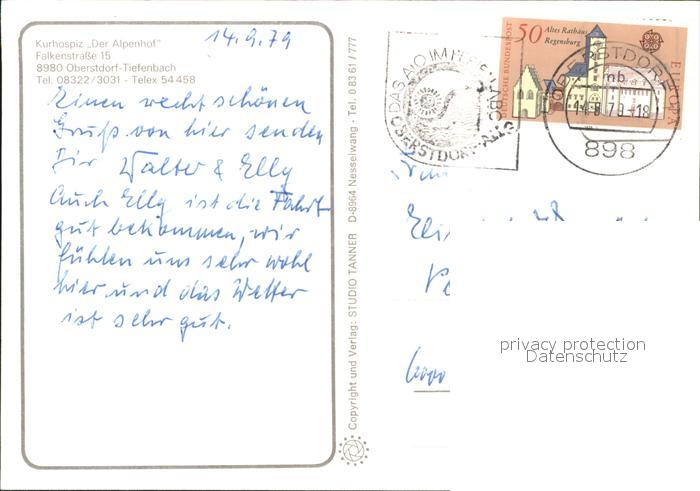 14.9.79
Kurhospiz „Der Alpenhof"
Falkenstraße 15
8980 Oberstdorf-Tiefenbach
Tel. 08322/3031 - Telex 54458
Einen recht schönen
Gruß von hier senden
Dir Walter & Elly
Auch Elly ist die Fahrt
gut bekommen, wir
fühlen uns sehr wohl
hier und das Wetter
ist sehr gut.
Copyright und Verlag: STUDIO TANNER D-8964 Nesselwang - Tel. 0 83 61 / 777
DAS A/O IM FERIEN-ABC
OBERSTDORF-ALLGÄU
DEUTSCHE BUNDESPOST
50 Altes Rathaus
Regensburg
EUROPA
OBERSTDORF
mb
898
privacy protection
Datenschutz